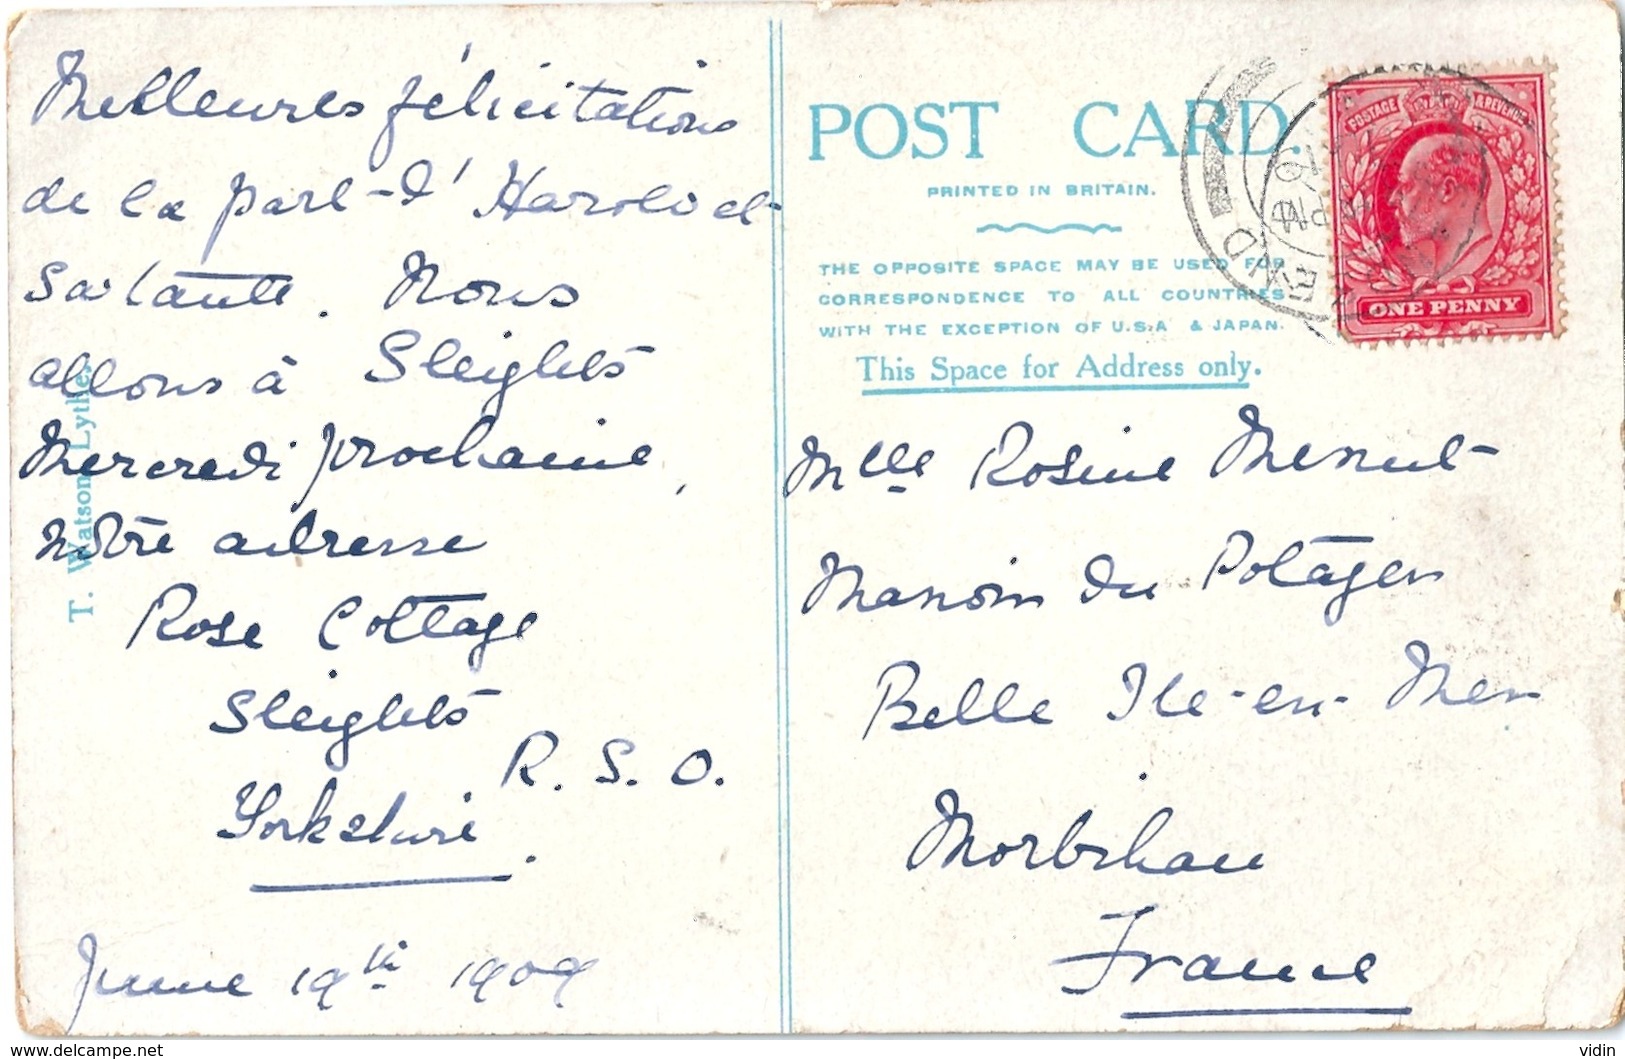 Meilleures félicitations
de la part d'Harold et
sa tante. Nous
allons à Sleights
Mercredi prochaine,
notre adresse
Rose Cottage
Sleights
R. S. O.
Yorkshire.
June 19th 1909
T. Watson, Lythe
POST CARD.
PRINTED IN BRITAIN.
THE OPPOSITE SPACE MAY BE USED FOR
CORRESPONDENCE TO ALL COUNTRIES
WITH THE EXCEPTION OF U.S.A & JAPAN.
This Space for Address only.
POSTAGE & REVENUE
ONE PENNY
PM
Mlle Rosine Menut
Manoir du Potager
Belle Ile-en-Mer
Morbihan
France
www.delcampe.net
vidin